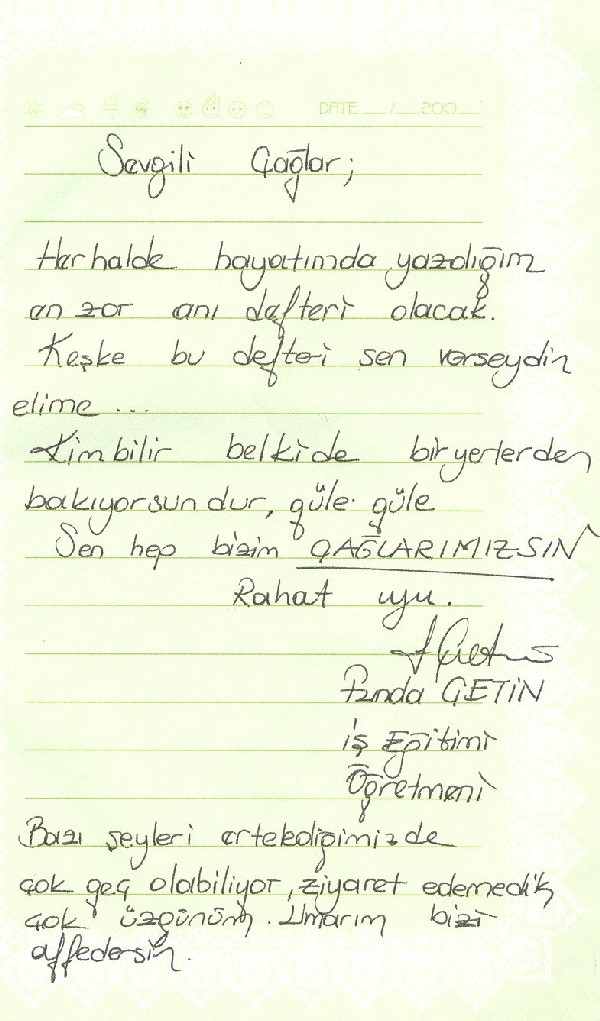 DATE __/__200__
Sevgili Çağlar;
Herhalde hayatımda yazdığım
en zor anı defteri olacak.
Keşke bu defteri sen verseydin
elime ...
Kimbilir belkide biryerlerden
bakıyorsundur, güle güle
Sen hep bizim ÇAĞLARIMIZSIN
Rahat uyu.
ÇETİN
İş Eğitimi
Öğretmeni
Bazı şeyleri ertelediğimizde
çok geç olabiliyor, ziyaret edemedik
çok üzgünüm. Umarım bizi
affedersin.